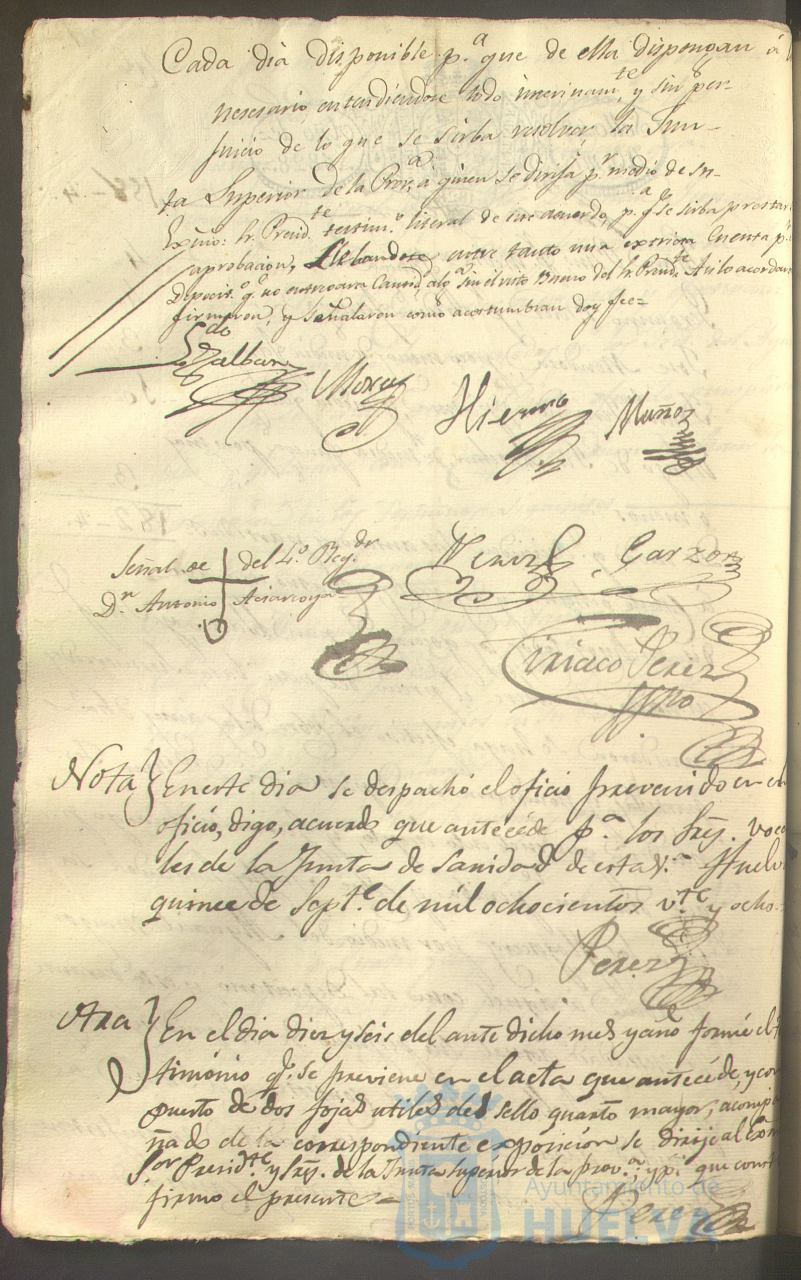 Cada dia disponible p.ª que de ella dispongan á
nesesario entendiendose todo interinam.te y sin per-
juicio de lo que se sirba resolver la Jun-
ta Superior de la Prov.ª á quien se dirija p.r medio de su
Exmo: Sr. Presid.te testim.o literal de este acuerdo, p.ª q.e se sirba prestar
aprobacion, Llebandose entre tanto una exsacta Cuenta p.r
Deposit.o q.e no entregara Cantid.d alg.ª sin el visto Bueno del Sr. Presid.te Asi lo acordaron
firmaron, y señalaron como acostumbran doy fee=
Ldo
Zalbar Mora Hierro Muñoz
Señal de del 4.o Reg.dr
D.n Antonio
Garzon
Ciriaco Perez
Nota} En este dia se despachó el oficio prevenido en el
oficio, digo, acuerdo que antecéde p.ª los Srs. Voca
les de la Junta de Sanidad de esta V.ª Huelv
quince de Sept.e de mil ochocientos v.te y ocho.
Perez
Otra} En el dia diez y seis del ante dicho mes y año formé el
timónio q.e se previene en el acta que antecéde, y com
puesto de dos fojas utiles del sello quarto mayor, acompa
ñado de la correspondiente exposicion se dirije al Exmo
Sor Presid.te y Srs. de la Junta Superior de la prov.ª, y p.ª que const
firmo el presente=
Perez
Ayuntamiento de
HUELVA